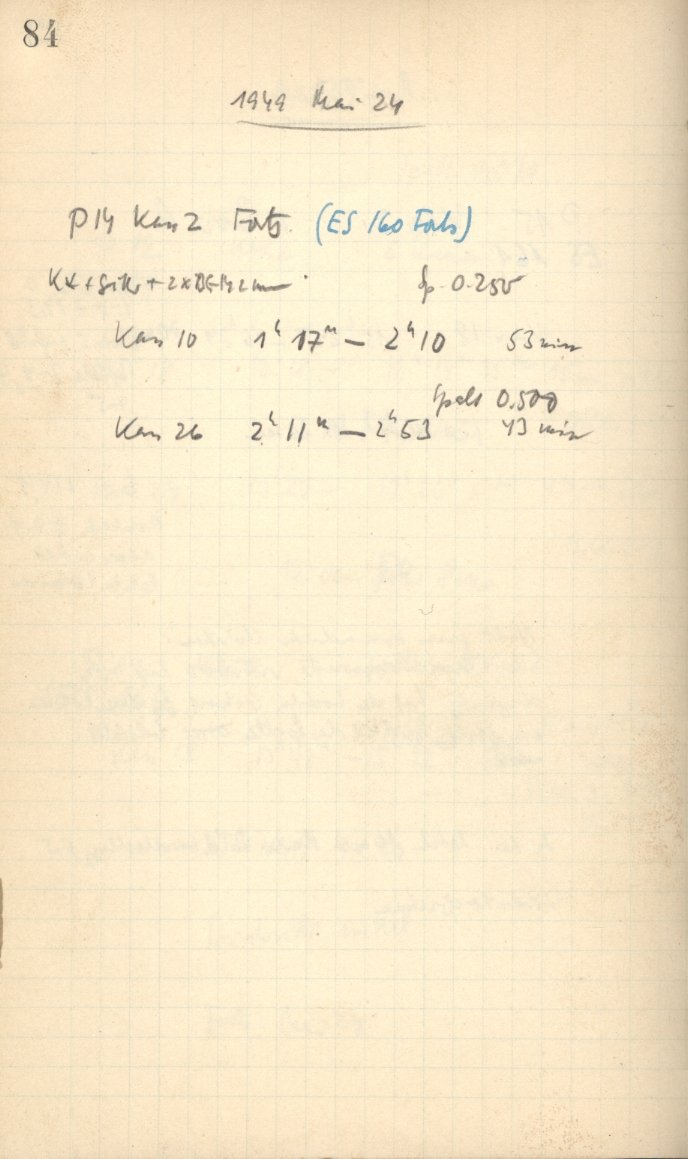 84
1949 Mai 24
P14 Kas 2 Fots. (ES 160 Fots)
Sp. 0.250
Kas 10 1ʰ 17ᵐ — 2ʰ 10 53 min
Spalt 0.500
Kas 26 2ʰ 11ᵐ — 2ʰ 53 43 min